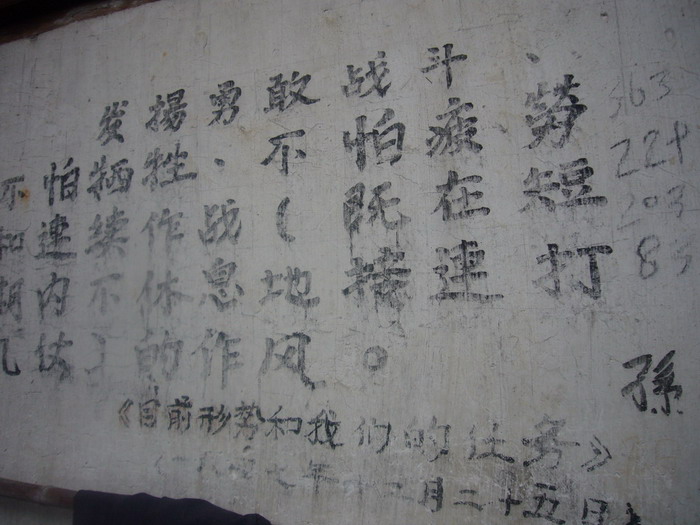 发揚勇敢战斗、
不怕牺牲、不怕疲勞
和連续作战(既在短
期内不休息地接連打
几仗)的作风。
《目前形势和我们的任务》
(一九四七年十二月二十五日)
363
224
203
83
孫